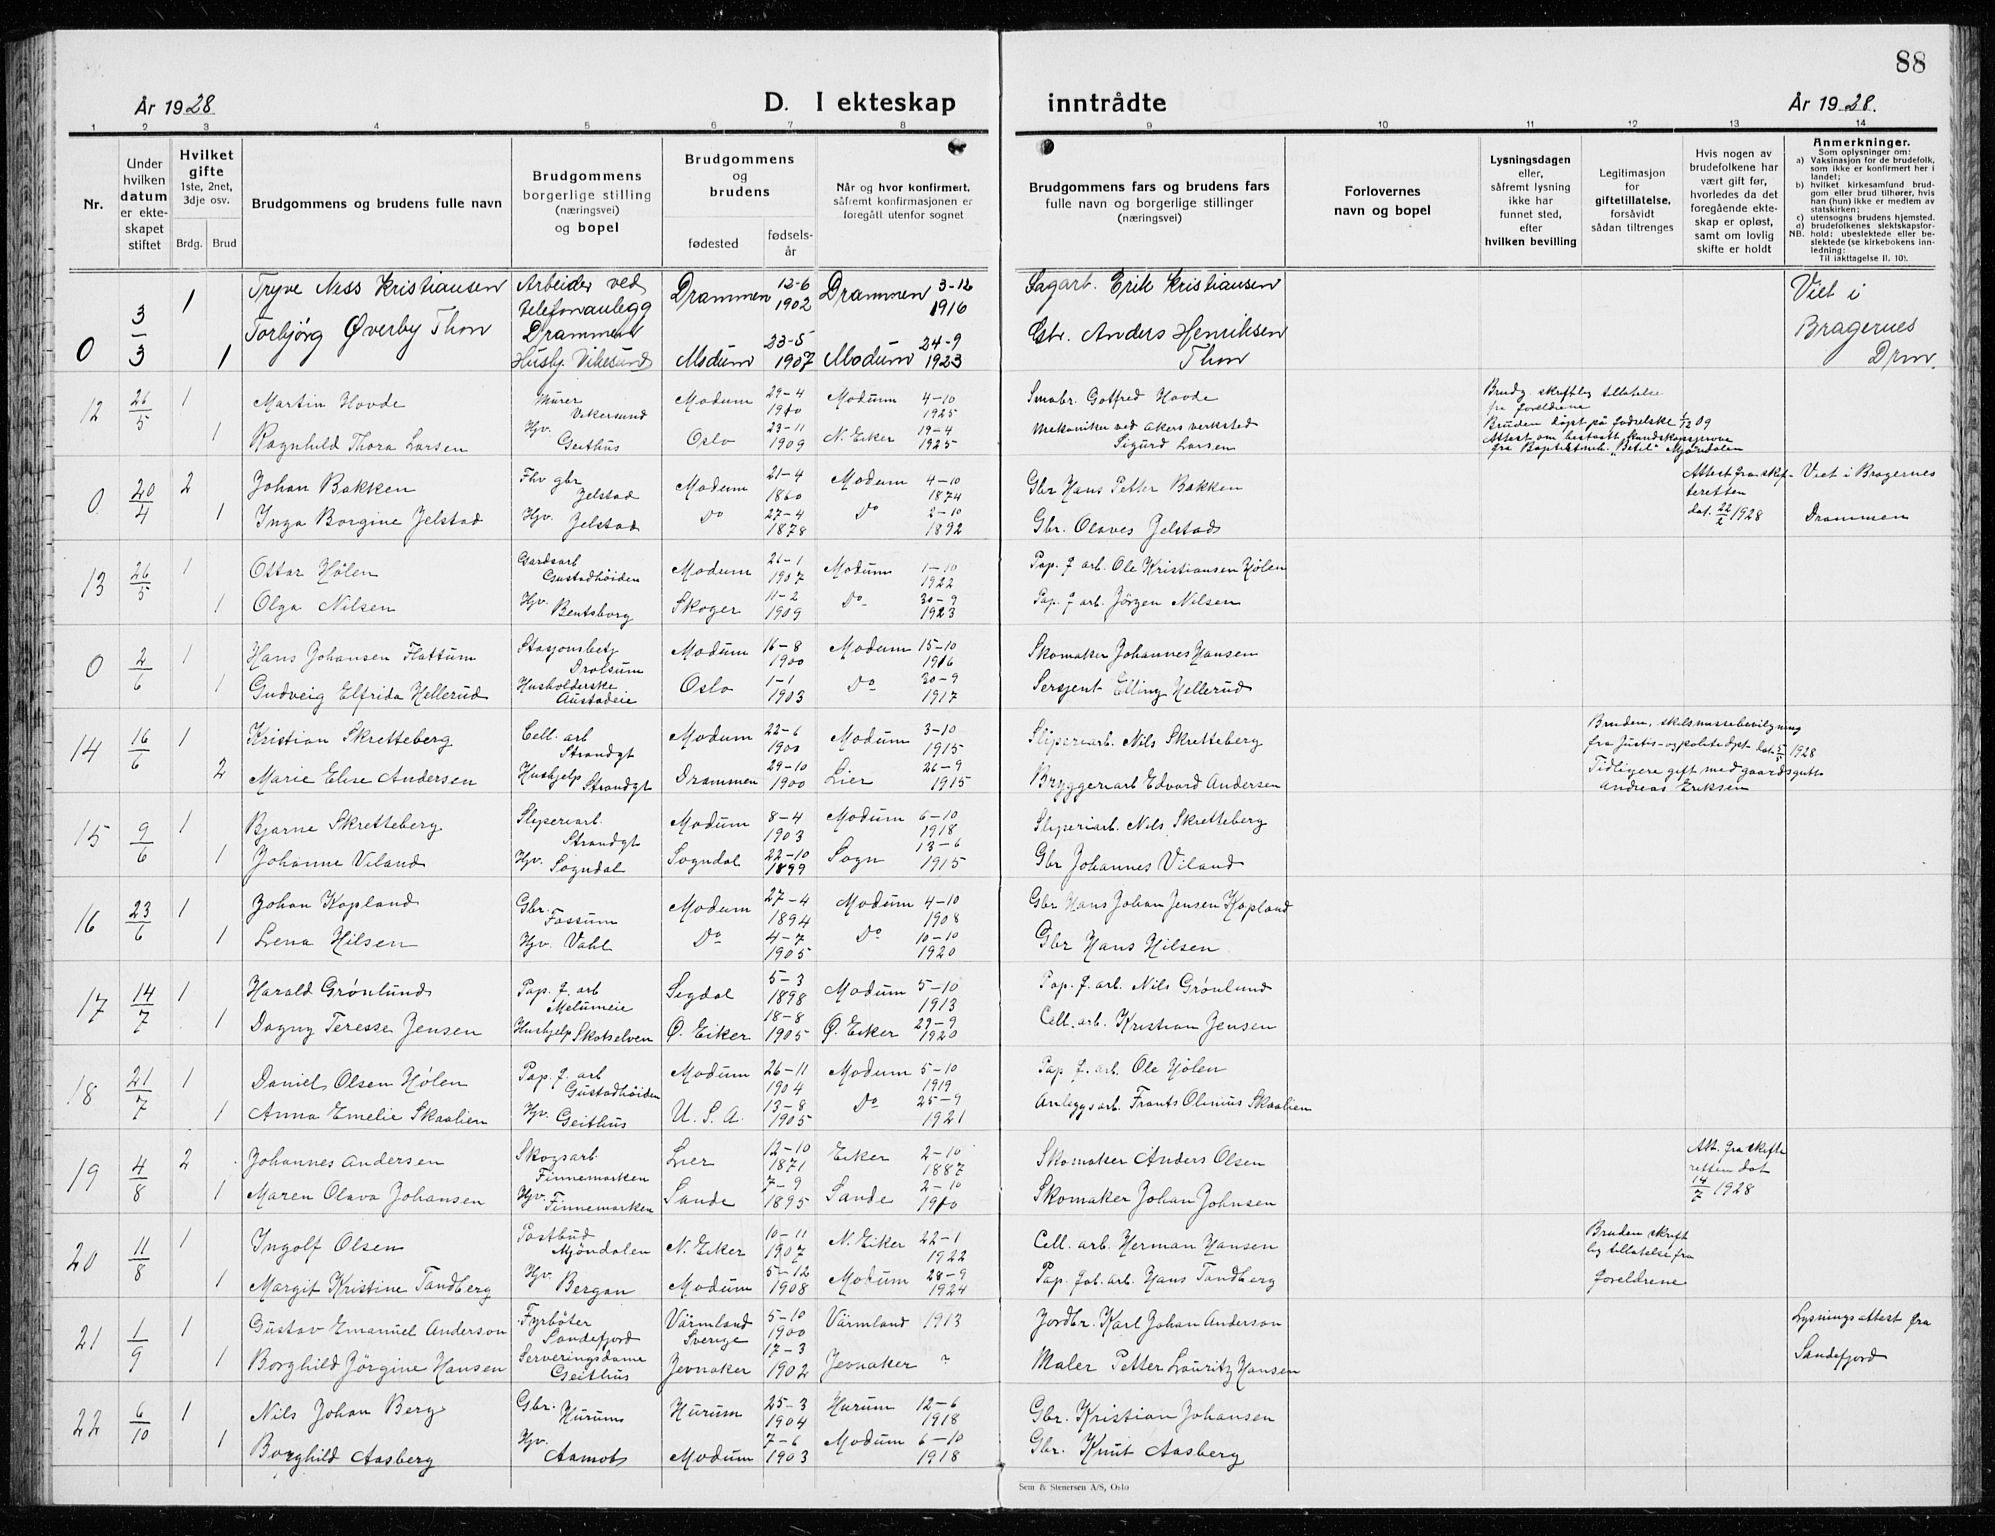 88
År 1928 D. I ekteskap inntrådte År 1928.
1 2 3 4 5 6 7 8 9 10 11 12 13 14
Nr.
Under hvilken datum er ekteskapet stiftet
Hvilket gifte
1ste, 2net, 3dje osv.
Brdg. Brud
Brudgommens og brudens fulle navn
Brudgommens borgerlige stilling (næringsvei) og bopel
Brudgommens og brudens
fødested fødselsår
Når og hvor konfirmert, såfremt konfirmasjonen er foregått utenfor sognet
Brudgommens fars og brudens fars fulle navn og borgerlige stillinger (næringsvei)
Forlovernes navn og bopel
Lysningsdagen eller, såfremt lysning ikke har funnet sted, efter hvilken bevilling
Legitimasjon for giftetillatelse, forsåvidt sådan tiltrenges
Hvis nogen av brudefolkene har vært gift før, hvorledes da det foregående ekteskap er opløst, samt om lovlig skifte er holdt
Anmerkninger.
Som oplysninger om:
a) Vaksinasjon for de brudefolk, som ikke er konfirmert her i landet;
b) hvilket kirkesamfund brudgom eller brud tilhører, hvis han (hun) ikke er medlem av statskirken;
c) utensogns brudens hjemsted.
d) brudefolkenes slektskapsforhold: ubeslektede eller beslektede (se kirkebokens innledning:
NB. Til iakttagelse II. 10).
0 3/3 1 Tryve Ness Kristiansen Arbeider ved telefonanlegg Drammen Drammen 12-6 1902 Drammen 3-12 1916 Sagarb. Erik Kristiansen Viet i Bragernes Drm.
1 Torbjörg Øverby Thon Husbj. Vikesund Modum 23-5 1907 Modum 24-9 1923 Gbr. Anders Henriksen Thon
12 26/5 1 Martin Hovde Murer Vikersund Modum 29-4 1910 Modum 4-10 1925 Smabr. Gotfred Hovde Brudg. skriftlig tillatelse fra foreldrene
1 Ragnhild Thora Larsen Hjv. Geithus Oslo 23-11 1909 N. Eiker 19-4 1925 Mekaniker ved Akers verksted Sigurd Larsen Bruden døpt på fødselskl. 1/12 09 Attest om bestaatt kundskapsprøve fra Baptistmh. "Betel" Mjøndalen
0 20/4 2 Johan Bakken Fhv gbr Jelstad Modum 21-4 1860 Modum 4-10 1874 Gbr Hans Petter Bakken Attest fra skifteretten dat. 22/2 1928 Viet i Bragernes Drammen
1 Inga Borgine Jelstad Hjv. Jelstad Do 27-4 1878 Do 2-10 1892 Gbr. Olaves Jelstad
13 26/5 1 Ottar Hølen Gardsarb Gustadhöiden Modum 26-1 1907 Modum 1-10 1922 Pap. f arb. Ole Kristiansen Hølen
1 Olga Nilsen Hjv. Bentsborg Skoger 11-2 1909 Do 30-9 1923 Pap. f arb. Jörgen Nilsen
0 2/6 1 Hans Johansen Flattum Stasjonsbetj Drolsum Modum 16-8 1900 Modum 15-10 1916 Skomaker Johannes Hansen
1 Gudveig Elfrida Hellerud Husholderske Austadeie Oslo 1-1 1903 Do 30-9 1917 Sersjent Elling Hellerud
14 16/6 1 Kristian Skretteberg Cell. arb Strandgt Modum 22-6 1900 Modum 3-10 1915 Sliperiarb. Nils Skretteberg Bruden, skilsmissebevilgning fra Justis- og polite dpt dat 5/5 1928
2 Marie Elise Andersen Hushjelp Strandgt Drammen 29-10 1900 Lier 26-9 1915 Bryggeriarb Edvard Andersen Tidligere gift med gaardsgutt Andreas Eriksen
15 9/6 1 Bjarne Skretteberg Sliperiarb. Strandgt Modum 8-4 1903 Modum 6-10 1918 Sliperiarb. Nils Skretteberg
1 Johanne Viland Hjv. Sogndal Sogndal 22-10 1899 Sogn 13-6 1915 Gbr Johannes Viland
16 23/6 1 Johan Kopland Gbr. Fossum Modum 27-4 1894 Modum 4-10 1908 Gbr Hans Johan Jensen Kopland
1 Lena Hilsen Hjv. Vahl Do 4-7 1905 Do 10-10 1920 Gbr Hans Hilsen
17 14/7 1 Harald Grönlund Pap. f. arb Melumeie Sigdal 5-3 1898 Modum 5-10 1913 Pap. f. arb. Nils Grønlund
1 Dagny Teresse Jensen Hushjelp Skotselven Ø. Eiker 18-8 1905 Ø. Eiker 29-9 1920 Cell. arb. Kristian Jensen
18 21/7 1 Daniel Olsen Hølen Pap. f. arb Gustadhöiden Modum 26-11 1904 Modum 5-10 1919 Pap f. arb. Ole Hølen
1 Anna Emelie Skaalien Hjv. Geithus U.S.A. 13-8 1905 Do 25-9 1921 Anleggsarb. Frants Olinius Skaalien
19 4/8 2 Johannes Andersen Skogsarb. Finnemarken Lier 12-10 1871 Eiker 2-10 1887 Skomaker Anders Olsen Att. fra skifteretten dat 14/7 1928
1 Maren Olava Johansen Hjv. Finnemarken Sande 7-9 1895 Sande 2-10 1910 Skomaker Johan Johnsen
20 11/8 1 Ingolf Olsen Postbud Mjöndalen N. Eiker 10-11 1907 N. Eiker 22-1 1922 Cell. arb. Herman Hansen Bruden skriftlig tillatelse fra foreldrene
1 Margit Kristine Tandberg Hjv. Bergan Modum 5-12 1908 Modum 28-9 1924 Pap. fab. arb. Hans Tandberg
21 1/9 1 Gustav Emanuel Anderson Fyrböter Sandefjord Värmland Sverige 5-10 1900 Värmland 1913 Jordbr. Karl Johan Anderson Lysningsattest fra Sandefjord
1 Borghild Jörgine Hansen Serveringsdame Geithus Jevnaker 17-3 1902 Jevnaker ? Maler Petter Lauritz Hansen
22 6/10 1 Nils Johan Berg Gbr. Hurum Hurum 25-3 1904 Hurum 12-6 1918 Gbr. Kristian Johansen
1 Borghild Aasberg Hjv. Aamot Modum 7-6 1903 Modum 6-10 1918 Gbr. Knut Aasberg
Sem & Stenersen A/S, Oslo